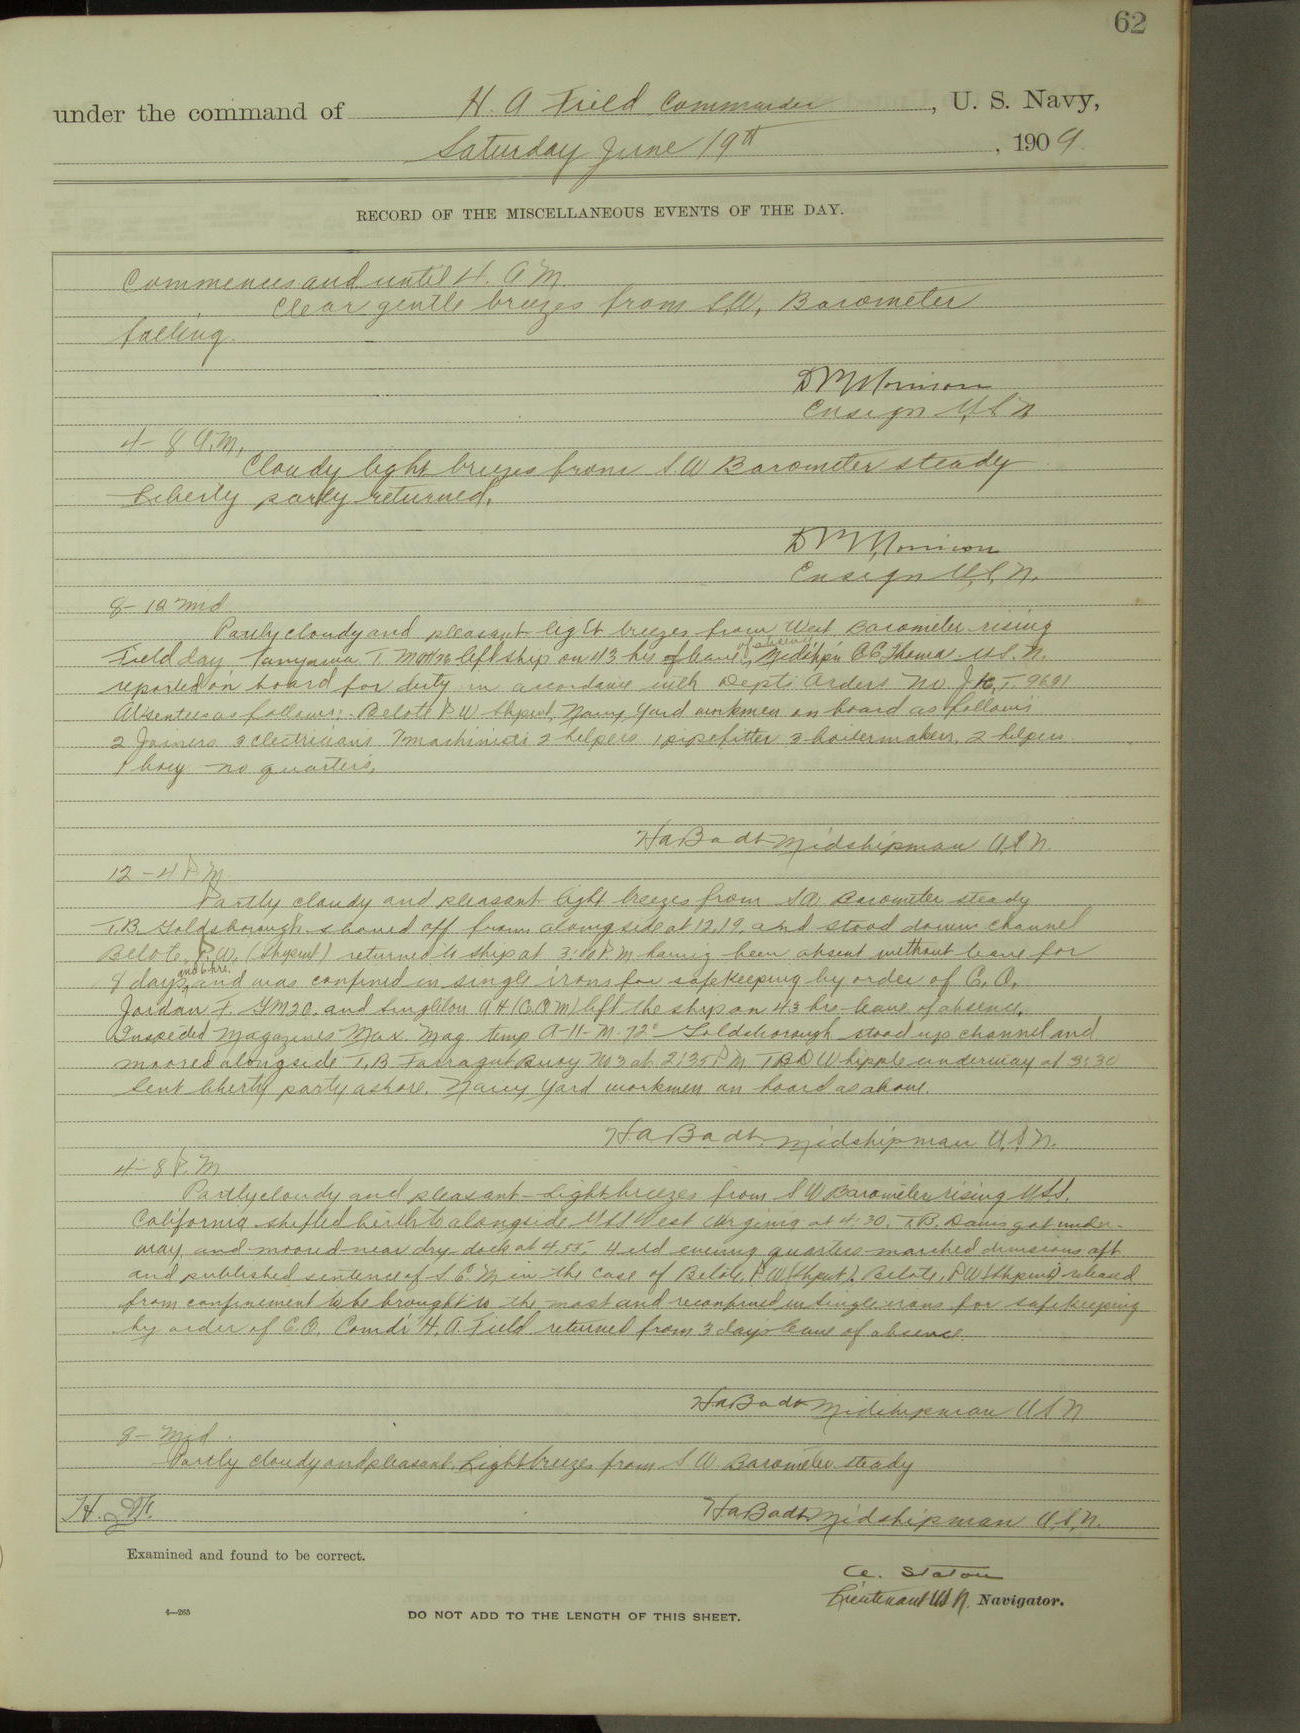 62
under the command of H. A Field Commander, U. S. Navy,
Saturday June 19th, 1909.
RECORD OF THE MISCELLANEOUS EVENTS OF THE DAY.
Commences and until 4. A M.
Clear gentle breezes from S.W. Barometer
falling.
Ensign U.S N
4- 8 A.M.
Cloudy light breezes from S.W Barometer steady
Liberty party returned.
Ensign U.S.N.
8- 12 Mid
Partly cloudy and pleasant light breezes from West Barometer rising
Field day. T. left ship on 43 hrs of leave of absence, Midshpn Thomas U.S.N.
reported on board for duty in accordance with Dept's Orders No 9691
Absentees as follows: Belote P W Shpwt, Navy Yard workmen on board as follows
2 Joiners 3 electricians machinists 2 helpers 1 pipefitter 3 boilermakers, 2 helpers
1 boy no quarters.
Ha Badt Midshipman U.S N.
12 - 4 P M
Partly cloudy and pleasant light breezes from SW Barometer steady
T.B. Goldsborough shoved off from alongside at 12.19 and stood down channel
Belote, P. W. (Shpwt) returned to ship at 3:00 P M. having been absent without leave for
8 days and 6 hrs. and was confined in single irons for safekeeping by order of C. O.
Jordan F. GM2C. and Singleton A H (C.O M) left the ship on 43 hrs leave of absence.
Inspected Magazines Max. Mag. temp A-11-M-72° Goldsborough stood up channel and
moored alongside T.B Farragut Buoy No 3 at 2:35 P M TBD Whipple underway at 3:30
Sent liberty party ashore. Navy Yard workmen on board as above.
Ha Badt. Midshipman U.S.N.
4-8 P. M
Partly cloudy and pleasant - Light breezes from S W Barometer rising USS.
California shifted berth to alongside USS West Virginia at 4.30. T.B. Davis got under-
way and moored near dry dock at 4.55. Held evening quarters marched divisions aft
and published sentence of S. C. M in the case of Belote, P W (Shpwt). Belote, P W (Shpwt) released
from confinement to be brought to the mast and reconfined in single irons for safekeeping
by order of C.O. Comdr H. A. Field returned from 3 days leave of absence.
Ha Badt Midshipman U S N
8- Mid.
Partly cloudy and pleasant. Light breezes from S W. Barometer steady
Ha Badt Midshipman U.S.N.
Examined and found to be correct.
Lieutenant US N. Navigator.
4—265
DO NOT ADD TO THE LENGTH OF THIS SHEET.